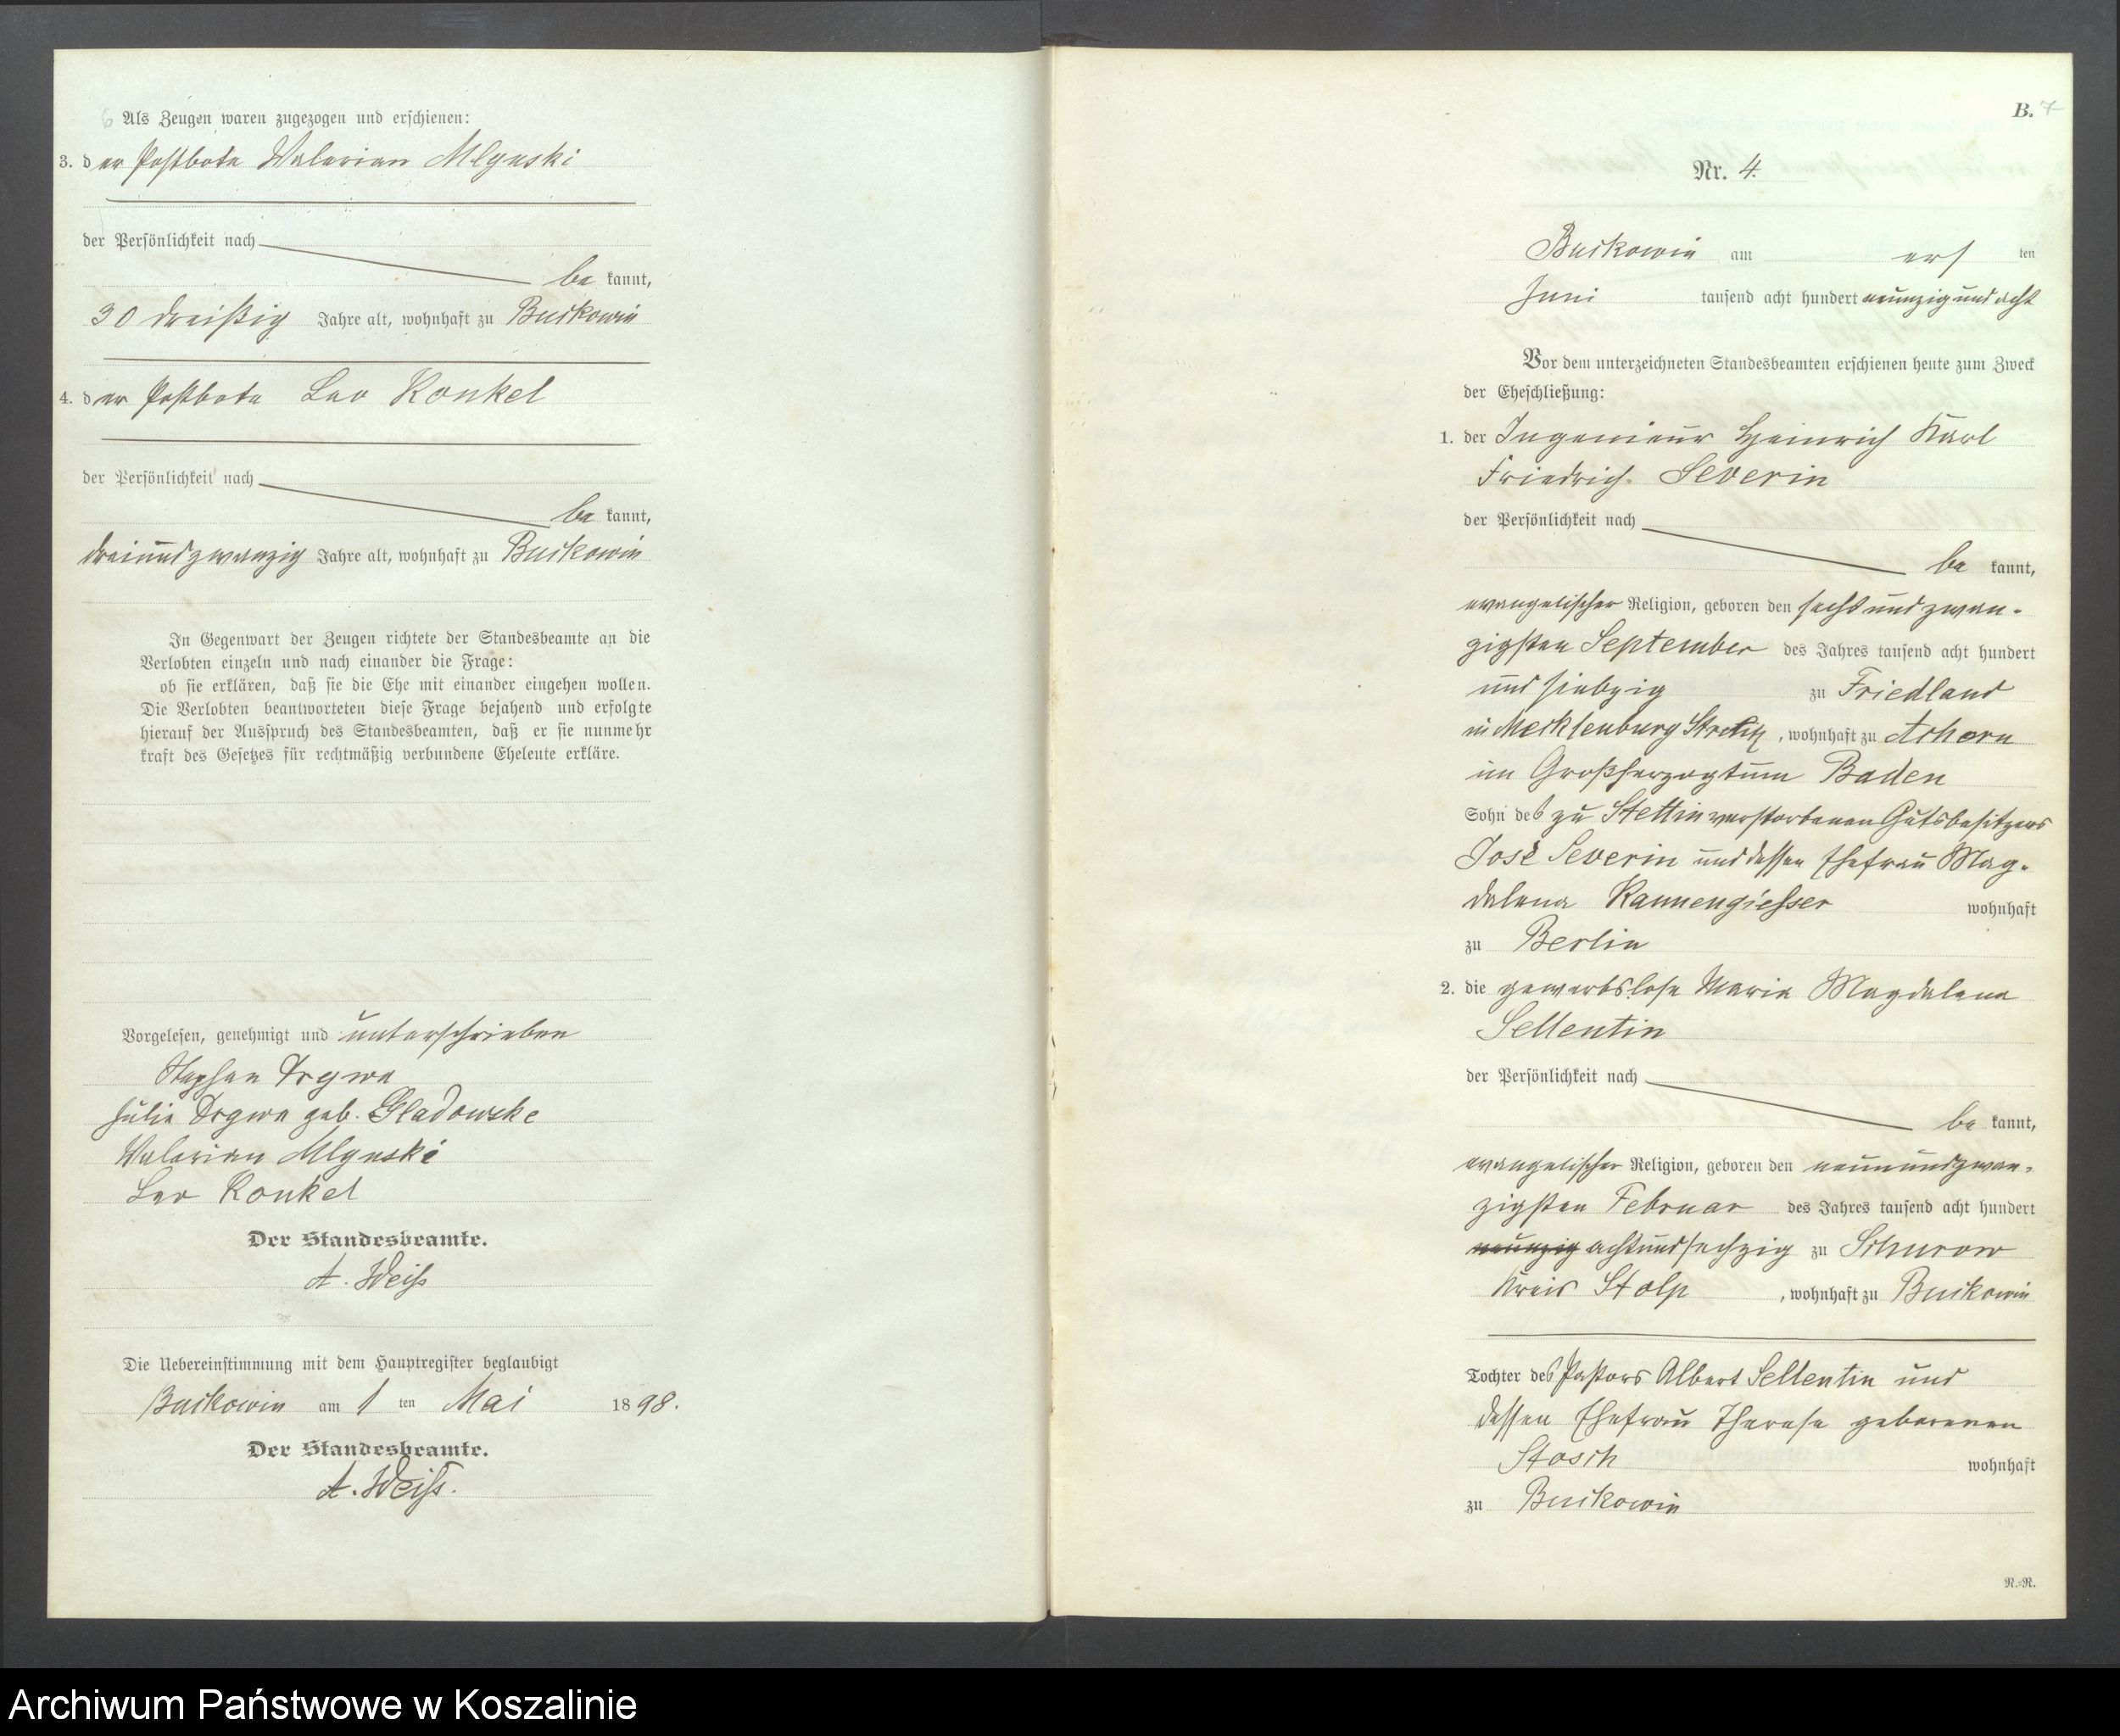 6 Als Zeugen waren zugezogen und erschienen:
3. der Postbote Valerian Mlynski
der Persönlichkeit nach
be kannt,
30 dreißig Jahre alt, wohnhaft zu Buckowin
4. der Postbote Leo Konkel
der Persönlichkeit nach
be kannt,
dreiundzwanzig Jahre alt, wohnhaft zu Buckowin
In Gegenwart der Zeugen richtete der Standesbeamte an die
Verlobten einzeln und nach einander die Frage:
ob sie erklären, daß sie die Ehe mit einander eingehen wollen.
Die Verlobten beantworteten diese Frage bejahend und erfolgte
hierauf der Ausspruch des Standesbeamten, daß er sie nunmehr
kraft des Gesetzes für rechtmäßig verbundene Eheleute erkläre.
Vorgelesen, genehmigt und unterschrieben
Stephan Drywa
Julie Drywa geb. Gladowske
Valerian Mlynski
Leo Konkel
Der Standesbeamte.
A. Weiß
Die Uebereinstimmung mit dem Hauptregister beglaubigt
Buckowin am 1 ten Mai 1898.
Der Standesbeamte.
A. Weiß.
B. 7
Nr. 4.
Buckowin am ers ten
Juni tausend acht hundert neunzig und acht
Vor dem unterzeichneten Standesbeamten erschienen heute zum Zweck
der Eheschließung:
1. der Ingenieur Heinrich Karl
Friedrich Severin
der Persönlichkeit nach
be kannt,
evangelischer Religion, geboren den sechsundzwan-
zigsten September des Jahres tausend acht hundert
und siebzig zu Friedland
in Mecklenburg Strelitz, wohnhaft zu Achern
im Großherzogtum Baden
Sohn des zu Stettin verstorbenen Gutsbesitzers
José Severin und dessen Ehefrau Mag-
dalena Kannengießer wohnhaft
zu Berlin
2. die gewerbslose Maria Magdalena
Sellentin
der Persönlichkeit nach
be kannt,
evangelischer Religion, geboren den neunundzwan-
zigsten Februar des Jahres tausend acht hundert
neunzig achtundsechzig zu Schurow
Kreis Stolp, wohnhaft zu Buckowin
Tochter des Pastors Albert Sellentin und
dessen Ehefrau Therese geborenen
Stosch wohnhaft
zu Buckowin
N.-R.
Archiwum Państwowe w Koszalinie